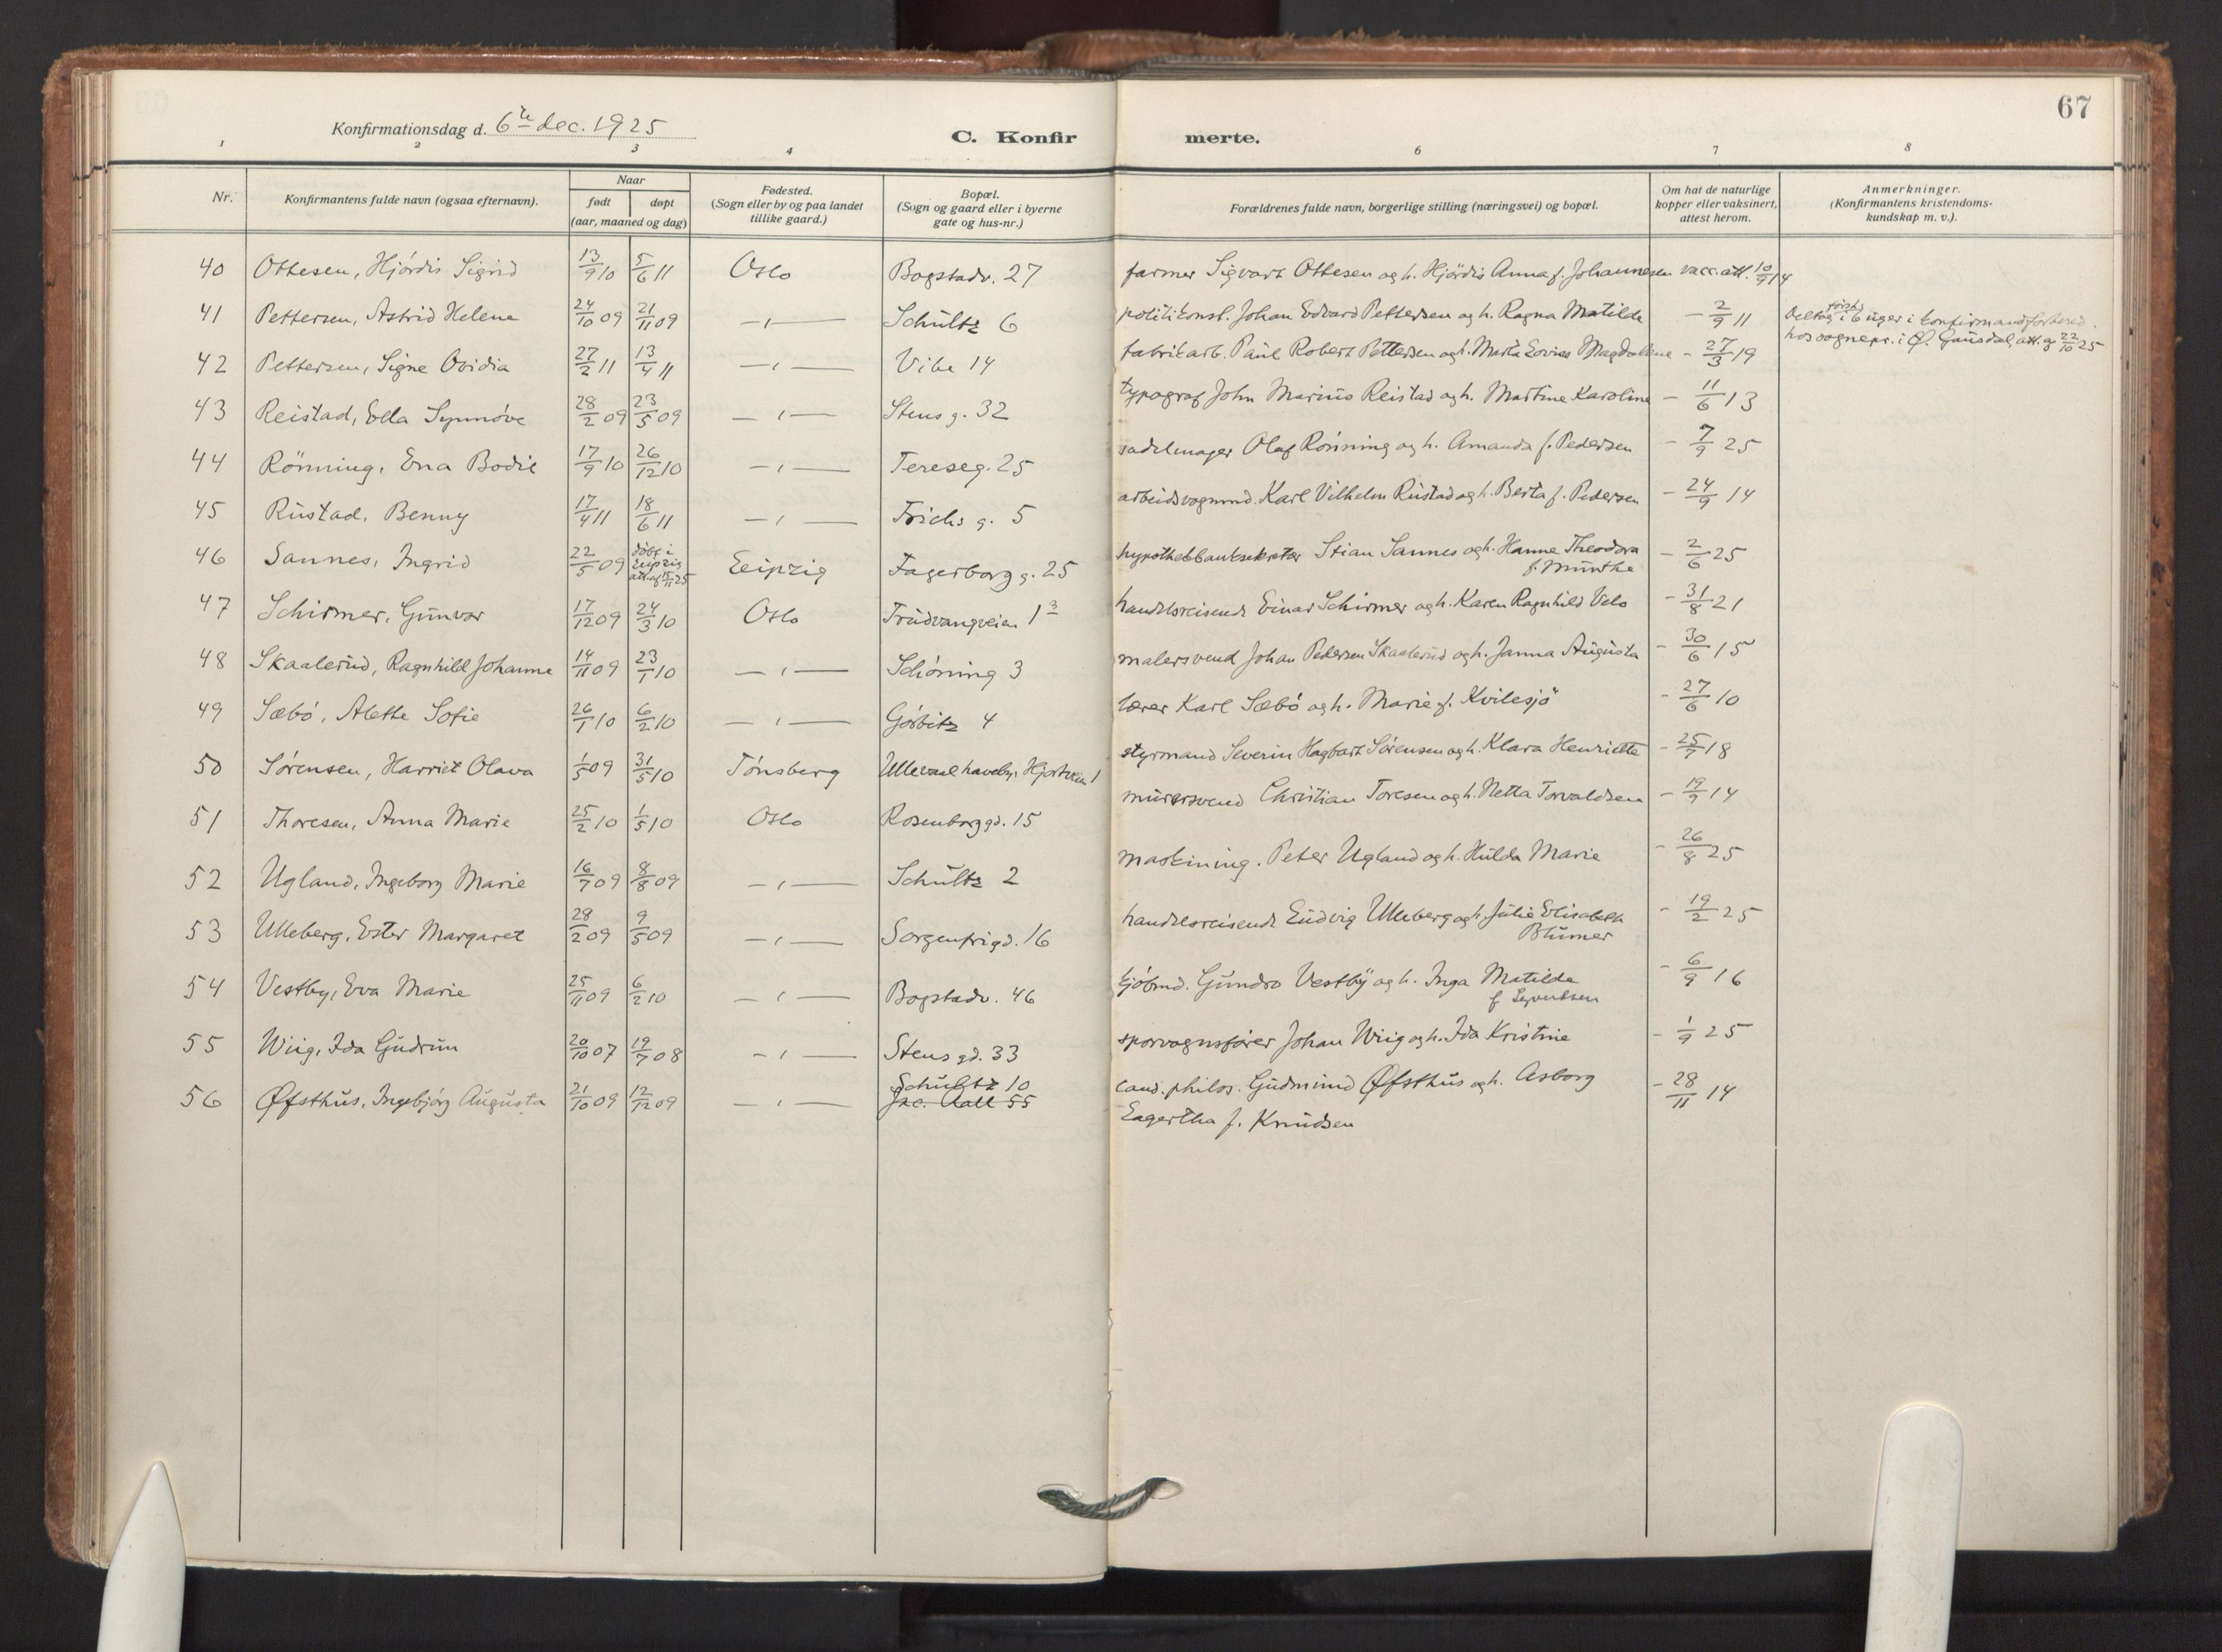 67
Konfirmationsdag d. 6te dec. 1925
C. Konfirmerte.
1 2 3 4 6 7 8
Nr. Konfirmantens fulde navn (ogsaa efternavn). Naar født døpt (aar, maaned og dag) Fødested. (Sogn eller by og paa landet tillike gaard.) Bopæl. (Sogn og gaard eller i byerne gate og hus-nr.) Forældrenes fulde navn, borgerlige stilling (næringsvei) og bopæl. Om hat de naturlige kopper eller vaksinert, attest herom. Anmerkninger. (Konfirmantens kristendoms-kundskap m. v.).
40 Ottesen, Hjördis Sigrid 13/9 10 5/6 11 Oslo Bogstadv. 27 farmer Sigvart Ottesen og h. Hjördis Anna f. Johannesen vacc. att. 10/9 14
41 Pettersen, Astrid Helene 24/10 09 21/11 09 —〃— Schultz 6 politikonst. Johan Edvard Pettersen og h. Ragna Matilde - 2/9 11 Deltog først i 6 uger i konfirmandforbered. hos sognepr. i Ø. Gausdal, att. af 22/10 25
42 Pettersen, Signe Ovidia 27/2 11 13/4 11 —〃— Vibe 14 fabrikarb. Paul Robert Pettersen og h. Marta Lovise Magdalene - 27/3 19
43 Reistad, Ella Synnöve 28/2 09 23/5 09 —〃— Stens g. 32 typograf John Marius Reistad og h. Martine Karoline - 11/6 13
44 Rönning, Ena Bodil 17/9 10 26/12 10 —〃— Tereseg. 25 sadelmager Olaf Rönning og h. Amanda f. Pedersen - 7/9 25
45 Rustad, Benny 17/4 11 18/6 11 —〃— Frichs g. 5 arbeidsvognmd. Karl Vilhelm Rustad og h. Berta f. Pedersen - 24/9 14
46 Sannes, Ingrid 22/5 09 döbt i Leipzig att. af 15/11 25 Leipzig Fagerborg g. 25 hypothekbanksekretær Stian Sannes og h. Hanna Theodora f. Munthe - 2/6 25
47 Schirmer, Gunvor 17/12 09 24/3 10 Oslo Trudvangveien 13 handelsreisende Einar Schirmer og h. Karen Ragnhild Velo - 31/8 21
48 Skaalerud, Ragnhild Johanne 14/11 09 23/1 10 —〃— Schöning 3 malersvend Johan Pedersen Skaalerud og h. Janna Augusta - 30/6 15
49 Sæbö, Alette Sofie 26/1 10 6/2 10 —〃— Görbitz 4 lærer Karl Sæbö og h. Marie f. Kvilesjö - 27/6 10
50 Sörensen, Harriet Olava 1/5 09 31/5 10 Tönsberg Ullevaal haveby, Hjortveien 1 styrmand Severin Hagbart Sörensen og h. Klara Henriette - 25/7 18
51 Thoresen, Anna Marie 25/2 10 1/5 10 Oslo Rosenborggd. 15 murersvend Christian Toresen og h. Netta Torvaldsen - 19/9 14
52 Ugland, Ingeborg Marie 16/7 09 8/8 09 —〃— Schultz 2 maskining. Peter Ugland og h. Hulda Marie - 26/8 25
53 Ulleberg, Ester Margaret 28/2 09 9/5 09 —〃— Sorgenfrigd. 16 handelsreisende Ludvig Ulleberg og h. Julie Elisabeth Blumer - 19/2 25
54 Vestby, Eva Marie 25/11 09 6/2 10 —〃— Bogstadv. 46 kjöbmd. Gundro Vestby og h. Inga Matilde f. - 6/9 16
55 Wiig, Ida Gudrun 20/10 07 19/7 08 —〃— Stens gd. 33 sporvognsförer Johan Wiig og h. Ida Kristine - 1/9 25
56 Øfsthus, Ingebjörg Augusta 21/10 09 12/12 09 —〃— Schultz 10 Jac. Aall 55 cand. philos. Gudmund Øfsthus og h. Asborg - 28/11 14
Lagertha f. Knudsen